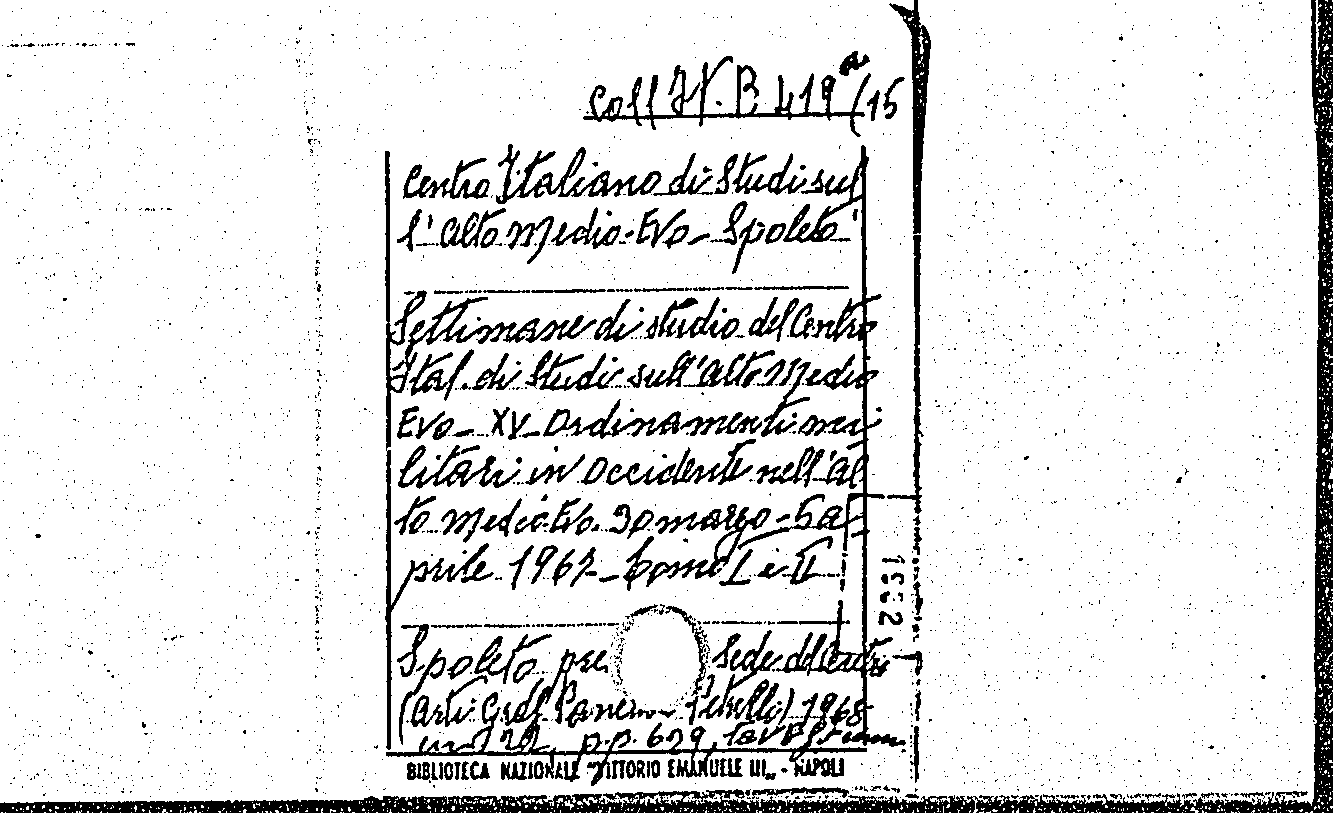 Coll. IV. B 419 a/15
Centro Italiano di Studi sul
l'alto Medio-Evo - Spoleto
Settimane di studio del Centro
Ital. di Studi sull'alto Medio
Evo - XV - Ordinamenti mi
litari in Occidente nell'al
to Medio Evo. 30 marzo - 5 a
prile 1967 - Tomo I e II
Spoleto, pre Sede del Centro
(Arti Graf. Pane Petrelli) 1968
pp. 629, tav.
BIBLIOTECA NAZIONALE "VITTORIO EMANUELE III" - NAPOLI